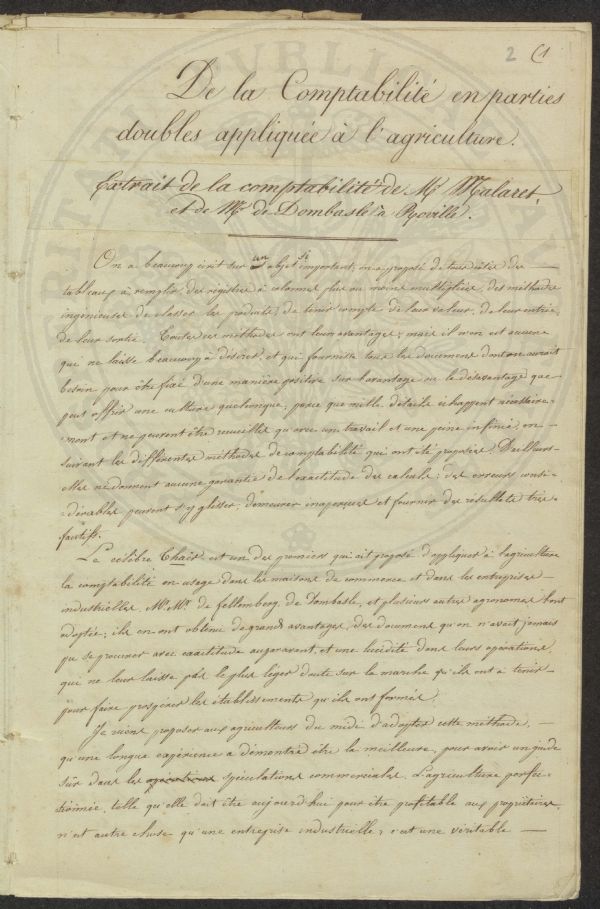 2 (1
De la Comptabilité en parties
doubles appliquée à l'agriculture.
Extrait de la comptabilité de Mr Malaret,
et de Mr de Dombasle à Roville.
On a beaucoup écrit sur un objet si important, on a proposé de tous côtés des
tableaux à remplir, des régistres à colonnes plus ou moins multipliées, des méthodes
ingénieuses de classer les produits, de tenir compte de leur valeur, de leur entrée,
de leur sortie. Toutes ces méthodes ont leurs avantages; mais il n'en est aucune
qui ne laisse beaucoup à désirer, et qui fournisse tous les documens dont on aurait
besoin pour être fixé d'une manière positive sur l'avantage ou le désavantage que
peut offrir une culture quelconque, parce que mille détails échappent nécessaire-
-ment et ne peuvent être recueillis qu'avec un travail et une peine infinie, en
suivant les différentes méthodes de comptabilité qui ont été proposées. D'ailleurs
elles ne donnent aucune garantie de l'exactitude des calculs; des erreurs consi-
-dérables peuvent s'y glisser, demeurer inaperçues et fournir des résultats très
fautifs.
Le célèbre Thaër est un des premiers qui ait proposé d'appliquer à l'agriculture
la comptabilité en usage dans les maisons de commerce et dans les entreprises
industrielles. Mr. Mr. de fellemberg, de Dombasle, et plusieurs autres agronomes l'ont
adoptée; ils en ont obtenu de grands avantages, des documens qu'on n'avait jamais
pu se procurer avec exactitude auparavant, et une lucidité dans leurs opérations,
qui ne leur laisse pas le plus léger doute sur la marche qu'ils ont à tenir
pour faire prospérer les établissements qu'ils ont formés.
Je viens proposer aux agriculteurs du midi d'adopter cette méthode,
qu'une longue expérience a démontré être la meilleure, pour avoir un guide
sûr dans les spéculations commerciales. L'agriculture perfec-
-tionnée, telle qu'elle doit être aujourd'hui pour être profitable aux propriétaires,
n'est autre chose qu'une entreprise industrielle; c'est une véritable